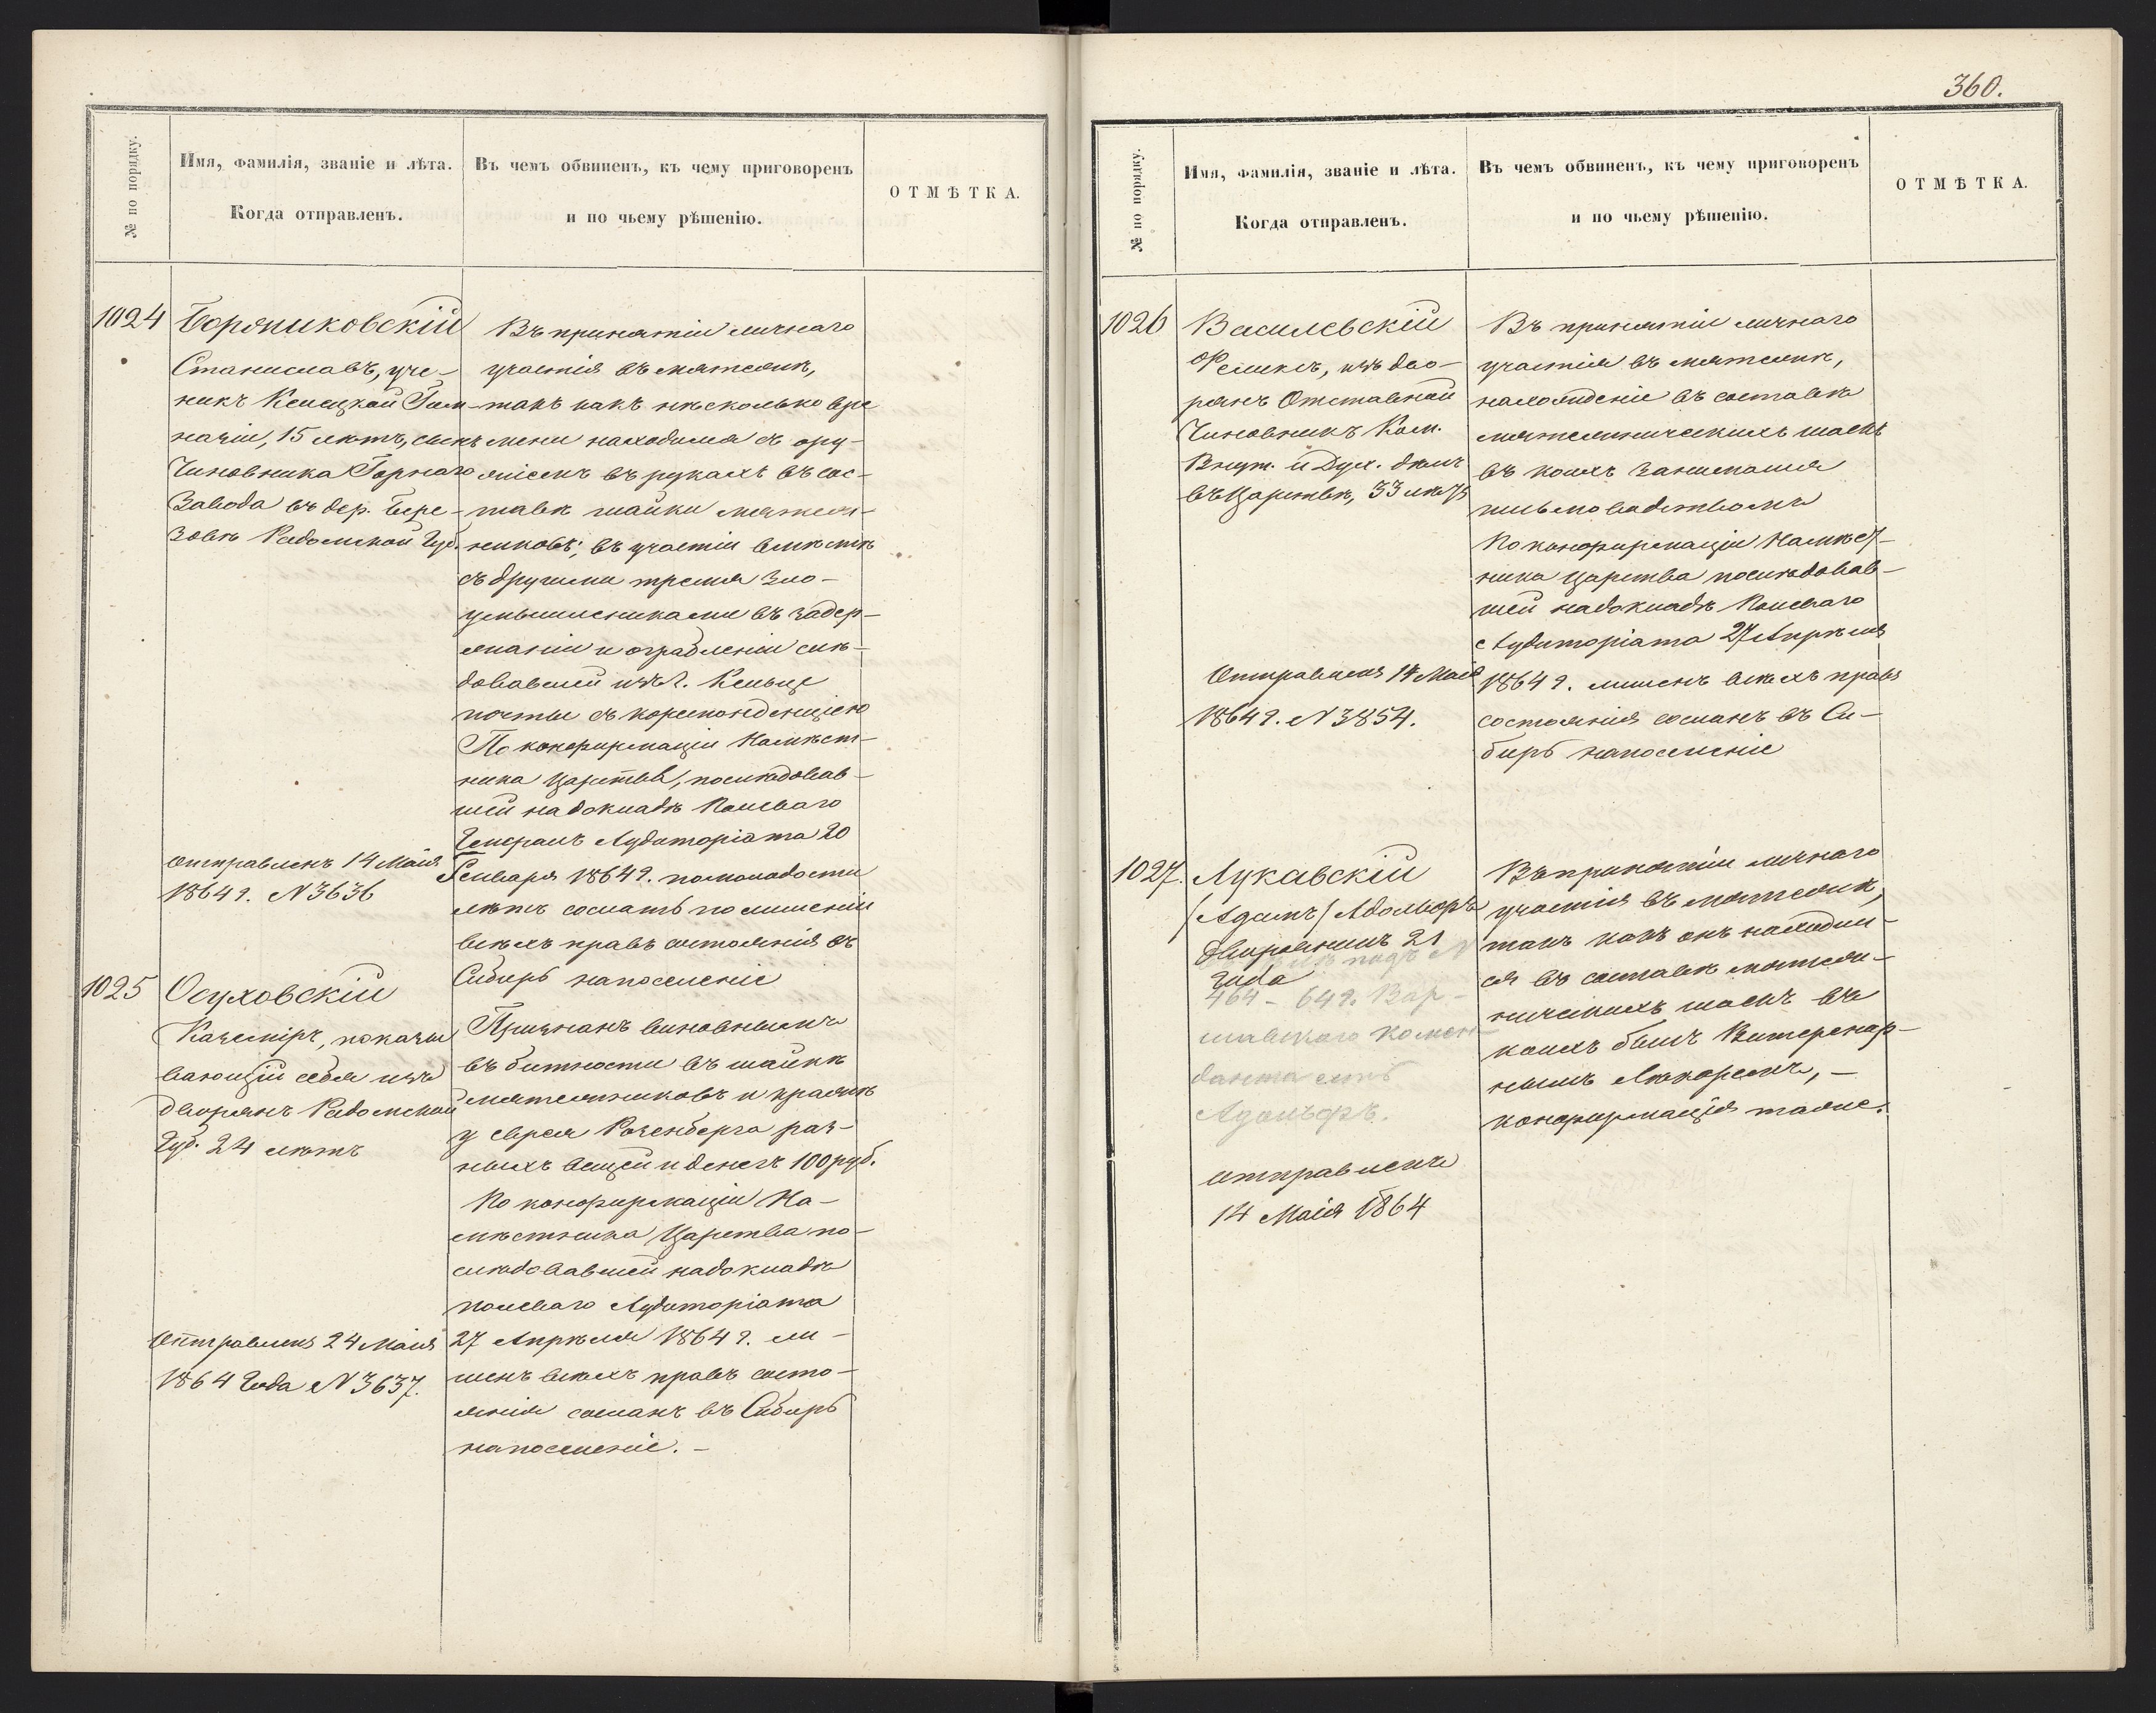 360.
№ по порядку.
Имя, фамилія, званіе и лѣта.
Когда отправленъ.
Въ чемъ обвиненъ, къ чему приговоренъ
и по чьему рѣшенію.
ОТМѢТКА.
1024
Станиславъ, уче-
никъ Келецкой Гим-
назіи, 15 лѣтъ, сынъ
Чиновника Горнаго
Завода въ дер. Бере-
зовѣ Радомской Губ.
Отправленъ 14 Маія
1864 г. N 3636
Въ принятіи личнаго
участія въ мятежѣ,
такъ какъ нѣсколько вре
мени находился съ ору-
жіемъ въ рукахъ въ сос-
тавѣ шайки мятеж-
никовъ; въ участіи вмѣстѣ
съ другими тремя зло-
умышленниками въ задер-
жаніи и ограбленіи слѣ-
довавшей изъ г. Кельце
почты съ кореспонденціею
По конфирмаціи Намѣст-
ника Царства, послѣдовав-
шей на докладѣ Полеваго
Генералъ Аудиторіата 20
Генваря 1864 г. по молодости
лѣтъ сослать по лишеніи
всѣхъ правъ состоянія въ
Сибирь на поселеніе
1025
Осуховскій
Казиміръ, показы
вающій себя изъ
дворянъ Радомской
Губ. 24 лѣтъ
Отправленъ 24 Маія
1864 Года N 3637.
Признанъ виновнымъ
въ битности въ шайкѣ
мятежниковъ и кражѣ
у еврея Розенберга раз-
ныхъ вещей и денегъ 100 руб.
По конфирмаціи На-
мѣстника Царства по-
слѣдовавшей на докладѣ
полеваго Аудиторіата
27 Апрѣля 1864 г. ли-
шенъ всѣхъ правъ состо-
янія сосланъ въ Сибирь
на поселеніе. —
№ по порядку.
Имя, фамилія, званіе и лѣта.
Когда отправленъ.
Въ чемъ обвиненъ, къ чему приговоренъ
и по чьему рѣшенію.
ОТМѢТКА.
1026
Василевскій
Феликсъ, изъ дво-
рянъ Отставной
Чиновникъ Ком.
Внут. и Дух. дѣлъ
въ Царствѣ, 33 лѣтъ
Отправленъ 14 Маія
1864 г. N 3854.
Въ принятіи личнаго
участія въ мятежѣ,
нахожденіе въ составѣ
мятежническихъ шаекъ
въ коихъ занимался
письмоводствомъ
По конфирмаціи Намѣст-
ника Царства послѣдовав-
шей на докладѣ Полеваго
Аудиторіата 27 Апрѣля
1864 г. лишенъ всѣхъ правъ
состоянія сосланъ въ Си-
бирь на поселеніе
1027.
Лукавскій
(Адамъ) Адольфъ
дворянинъ 21
года
подъ N
464 - 64 г. Вар-
шавскаго комен-
данта
Адольфъ.
отправленъ
14 Маія 1864
Въ принятіи личнаго
участія въ мятежѣ,
такъ какъ онъ находил-
ся въ составѣ мятеж-
ническихъ шаекъ въ
коихъ былъ Ветеренар-
нымъ Лѣкаремъ, —
конфирмація таже.